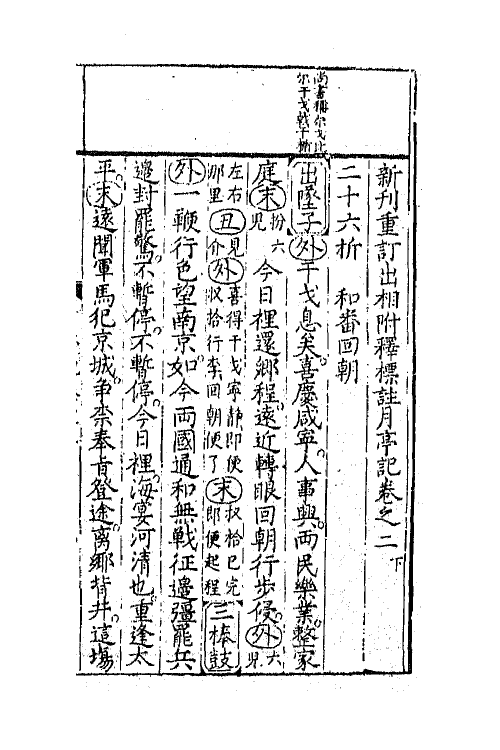 尚書稱尔戈比
尔干戈戟干析
新刊重訂出相附釋標註月亭記卷之二 下
二十六折 和番回朝
出墜子 外 干戈息矣喜慶咸寧人事興兩民樂業整家
庭 末 扮六兒 今日裡還鄉程遠近轉眼回朝行步侵 外 六兒
左右那里 丑 見介 外 喜得干戈寧靜即便收拾行李回朝便了 末 收拾已完即便起程 三棒鼓
外 一鞭行色望南京如今兩國通和無戰征邉彊罷兵
邉封罷驚不暫停不暫停今日裡海宴河清也重逢太
平 末 遠聞軍馬犯京城争柰奉旨登途离鄉背井這塲